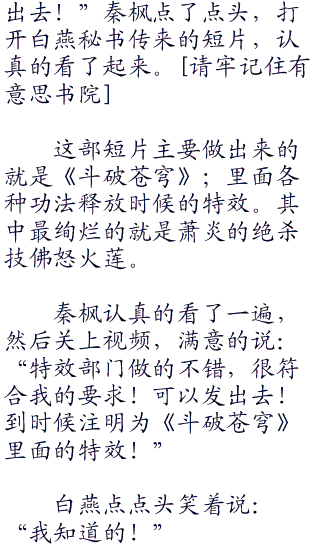 出去！”秦枫点了点头，打
开白燕秘书传来的短片，认
真的看了起来。[请牢记住有
意思书院]
这部短片主要做出来的
就是《斗破苍穹》；里面各
种功法释放时候的特效。其
中最绚烂的就是萧炎的绝杀
技佛怒火莲。
秦枫认真的看了一遍，
然后关上视频，满意的说：
“特效部门做的不错，很符
合我的要求！可以发出去！
到时候注明为《斗破苍穹》
里面的特效！”
白燕点点头笑着说：
“我知道的！”